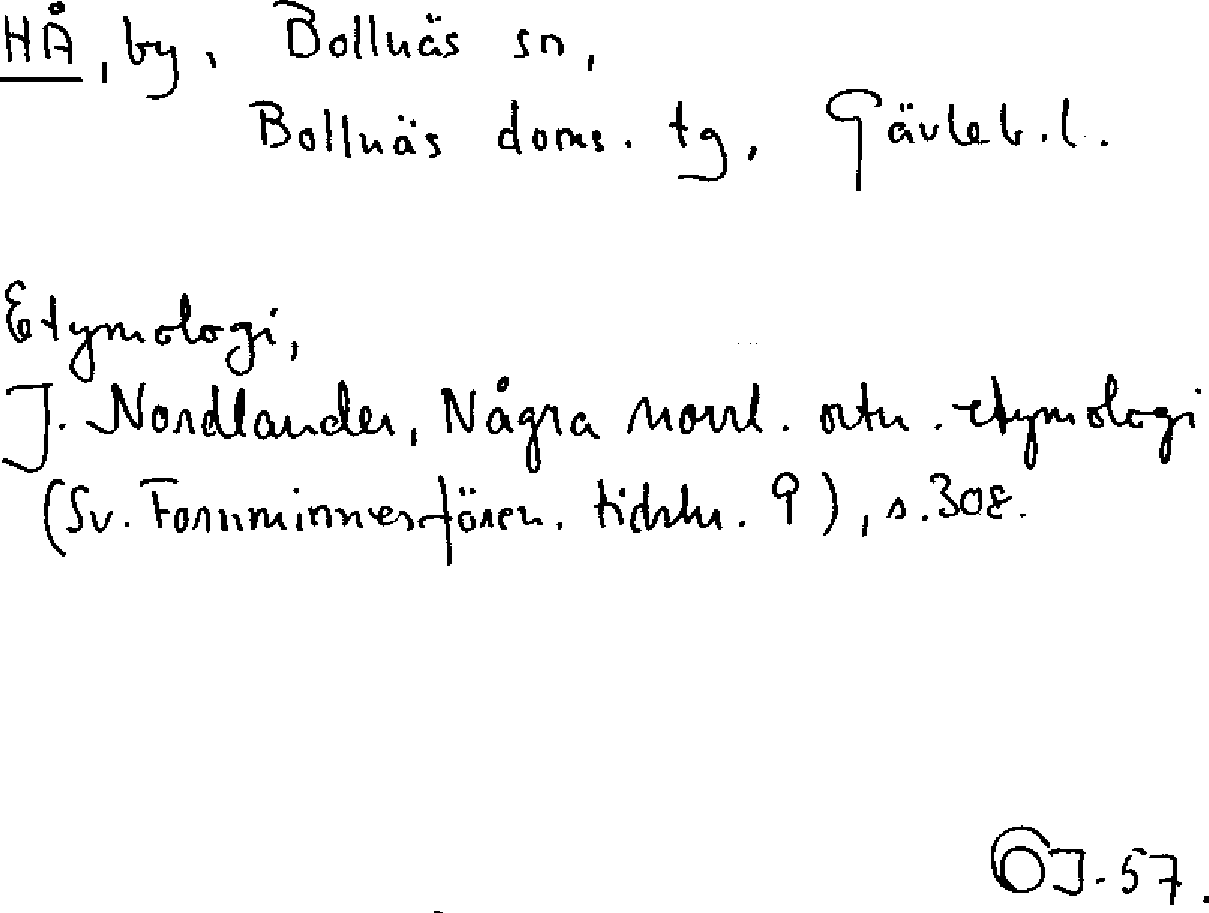 HÅ, by, Bollnäs sn,
Bollnäs doms. tg, Gävleb. l.
Etymologi,
J. Nordlander, Några norrl. ortn. etymologi
(Sv. Fornminnesfören. tidskr. 9), s. 308.
OJ-57.